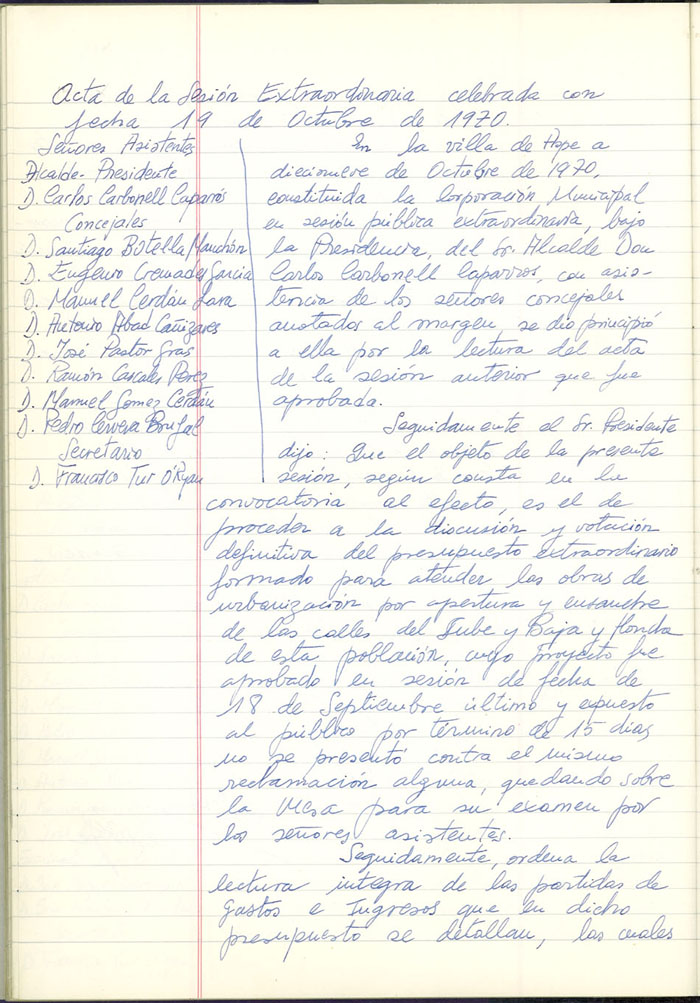 Acta de la Sesión Extraordinaria celebrada con
fecha 19 de Octubre de 1970.
Señores Asistentes
Alcalde-Presidente
D. Carlos Carbonell Caparrós
Concejales
D. Santiago Botella Manchón
D. Eugenio Cremades Garcia
D. Manuel Cerdán Lara
D. Antonio Abad Cañizares
D. José Pastor Gras
D. Ramón Cascales Perez
D. Manuel Gomez Cerdán
D. Pedro Cervera Brufal
Secretario
D. Francisco Tur O'Ryan
En la villa de Aspe a
diecinueve de Octubre de 1970,
constituida la Corporación Municipal
en sesión pública extraordinaria, bajo
la Presidencia, del Sr. Alcalde Don
Carlos Carbonell Caparros, con asis-
tencia de los señores concejales
anotados al margen, se dio principio
a ella por la lectura del acta
de la sesión anterior que fue
aprobada.
Seguidamente el Sr. Presidente
dijo: Que el objeto de la presente
sesión, según consta en la
convocatoria al efecto, es el de
proceder a la discusión y votación
definitiva del presupuesto extraordinario
formado para atender las obras de
urbanización por apertura y ensanche
de las calles del Nube y Baja y Honda
de esta población, cuyo proyecto fue
aprobado en sesión de fecha de
18 de Septiembre último y expuesto
al público por término de 15 días
no se presentó contra el mismo
reclamación alguna, quedando sobre
la Mesa para su examen por
los señores asistentes.
Seguidamente, ordena la
lectura integra de las partidas de
Gastos e Ingresos que en dicho
presupuesto se detallan, las cuales